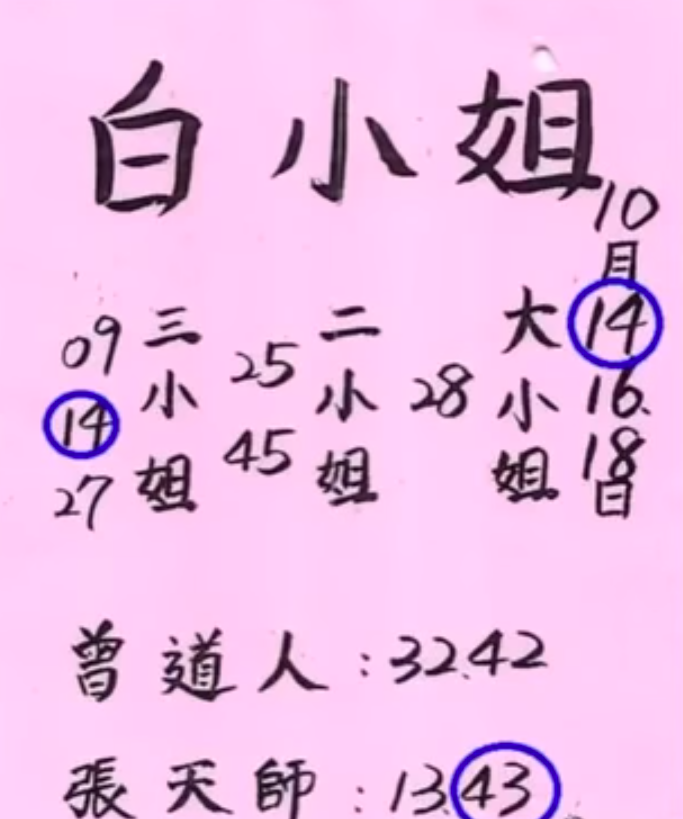 白小姐
10月14.16.18日
大小姐
28
二小姐
25
45
三小姐
09
14
27
曾道人:32.42
張天師:13.43